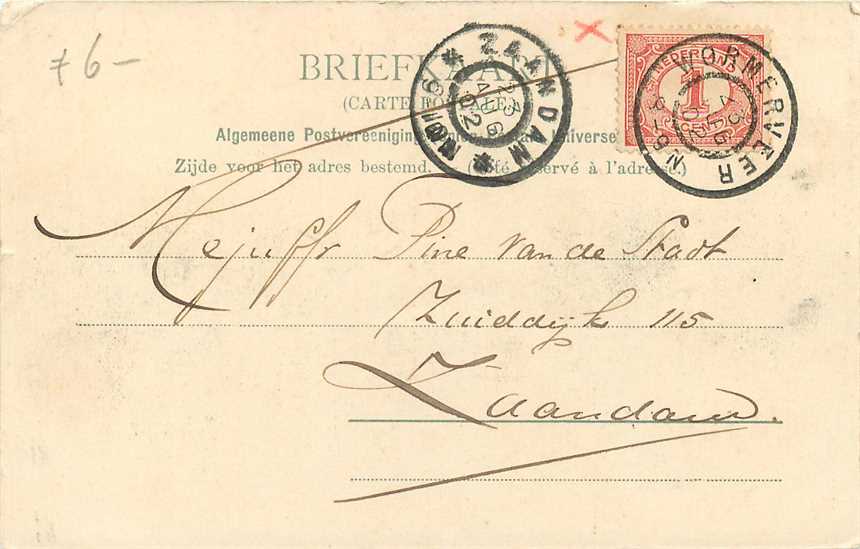 f 6-
BRIEFKAART
(CARTE POSTALE)
Algemeene Postvereeniging (Union Postale Universelle)
Zijde voor het adres bestemd. (Côté réservé à l'adresse.)
ZAANDAM
23 AUG 02
WORMERVEER
23 AUG 02
8-9 N
NEDERLAND
1
Mejuffr Pine van de Stadt
Zuiddijk 115
Zaandam.